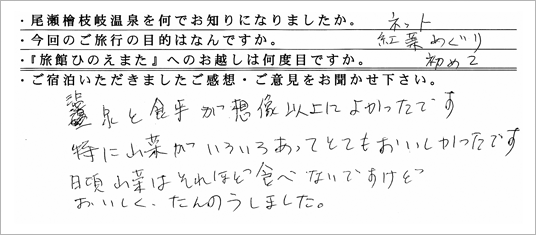 ・尾瀬檜枝岐温泉を何でお知りになりましたか。 ネット
・今回のご旅行の目的はなんですか。 紅葉めぐり
・『旅館ひのえまた』へのお越しは何度目ですか。 初めて
・ご宿泊いただきましたご感想・ご意見をお聞かせ下さい。
温泉と食事が想像以上によかったです
特に山菜がいろいろあってとてもおいしかったです
日頃山菜はそれほど食べないですけど
おいしく、たんのうしました。